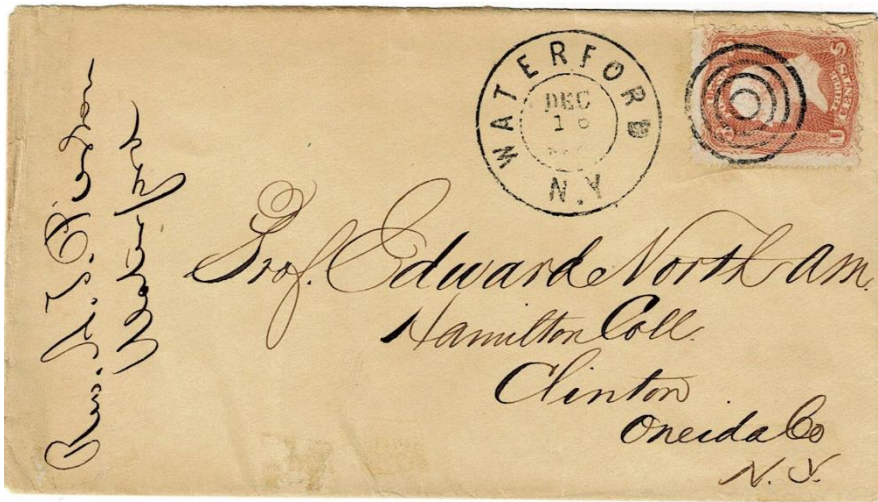 Rev. A. T. Pierson
Waterford
WATERFORD
DEC
N.Y
U S
CENTS
Prof. Edward North A.M.
Hamilton Coll.
Clinton
Oneida Co
N.Y.